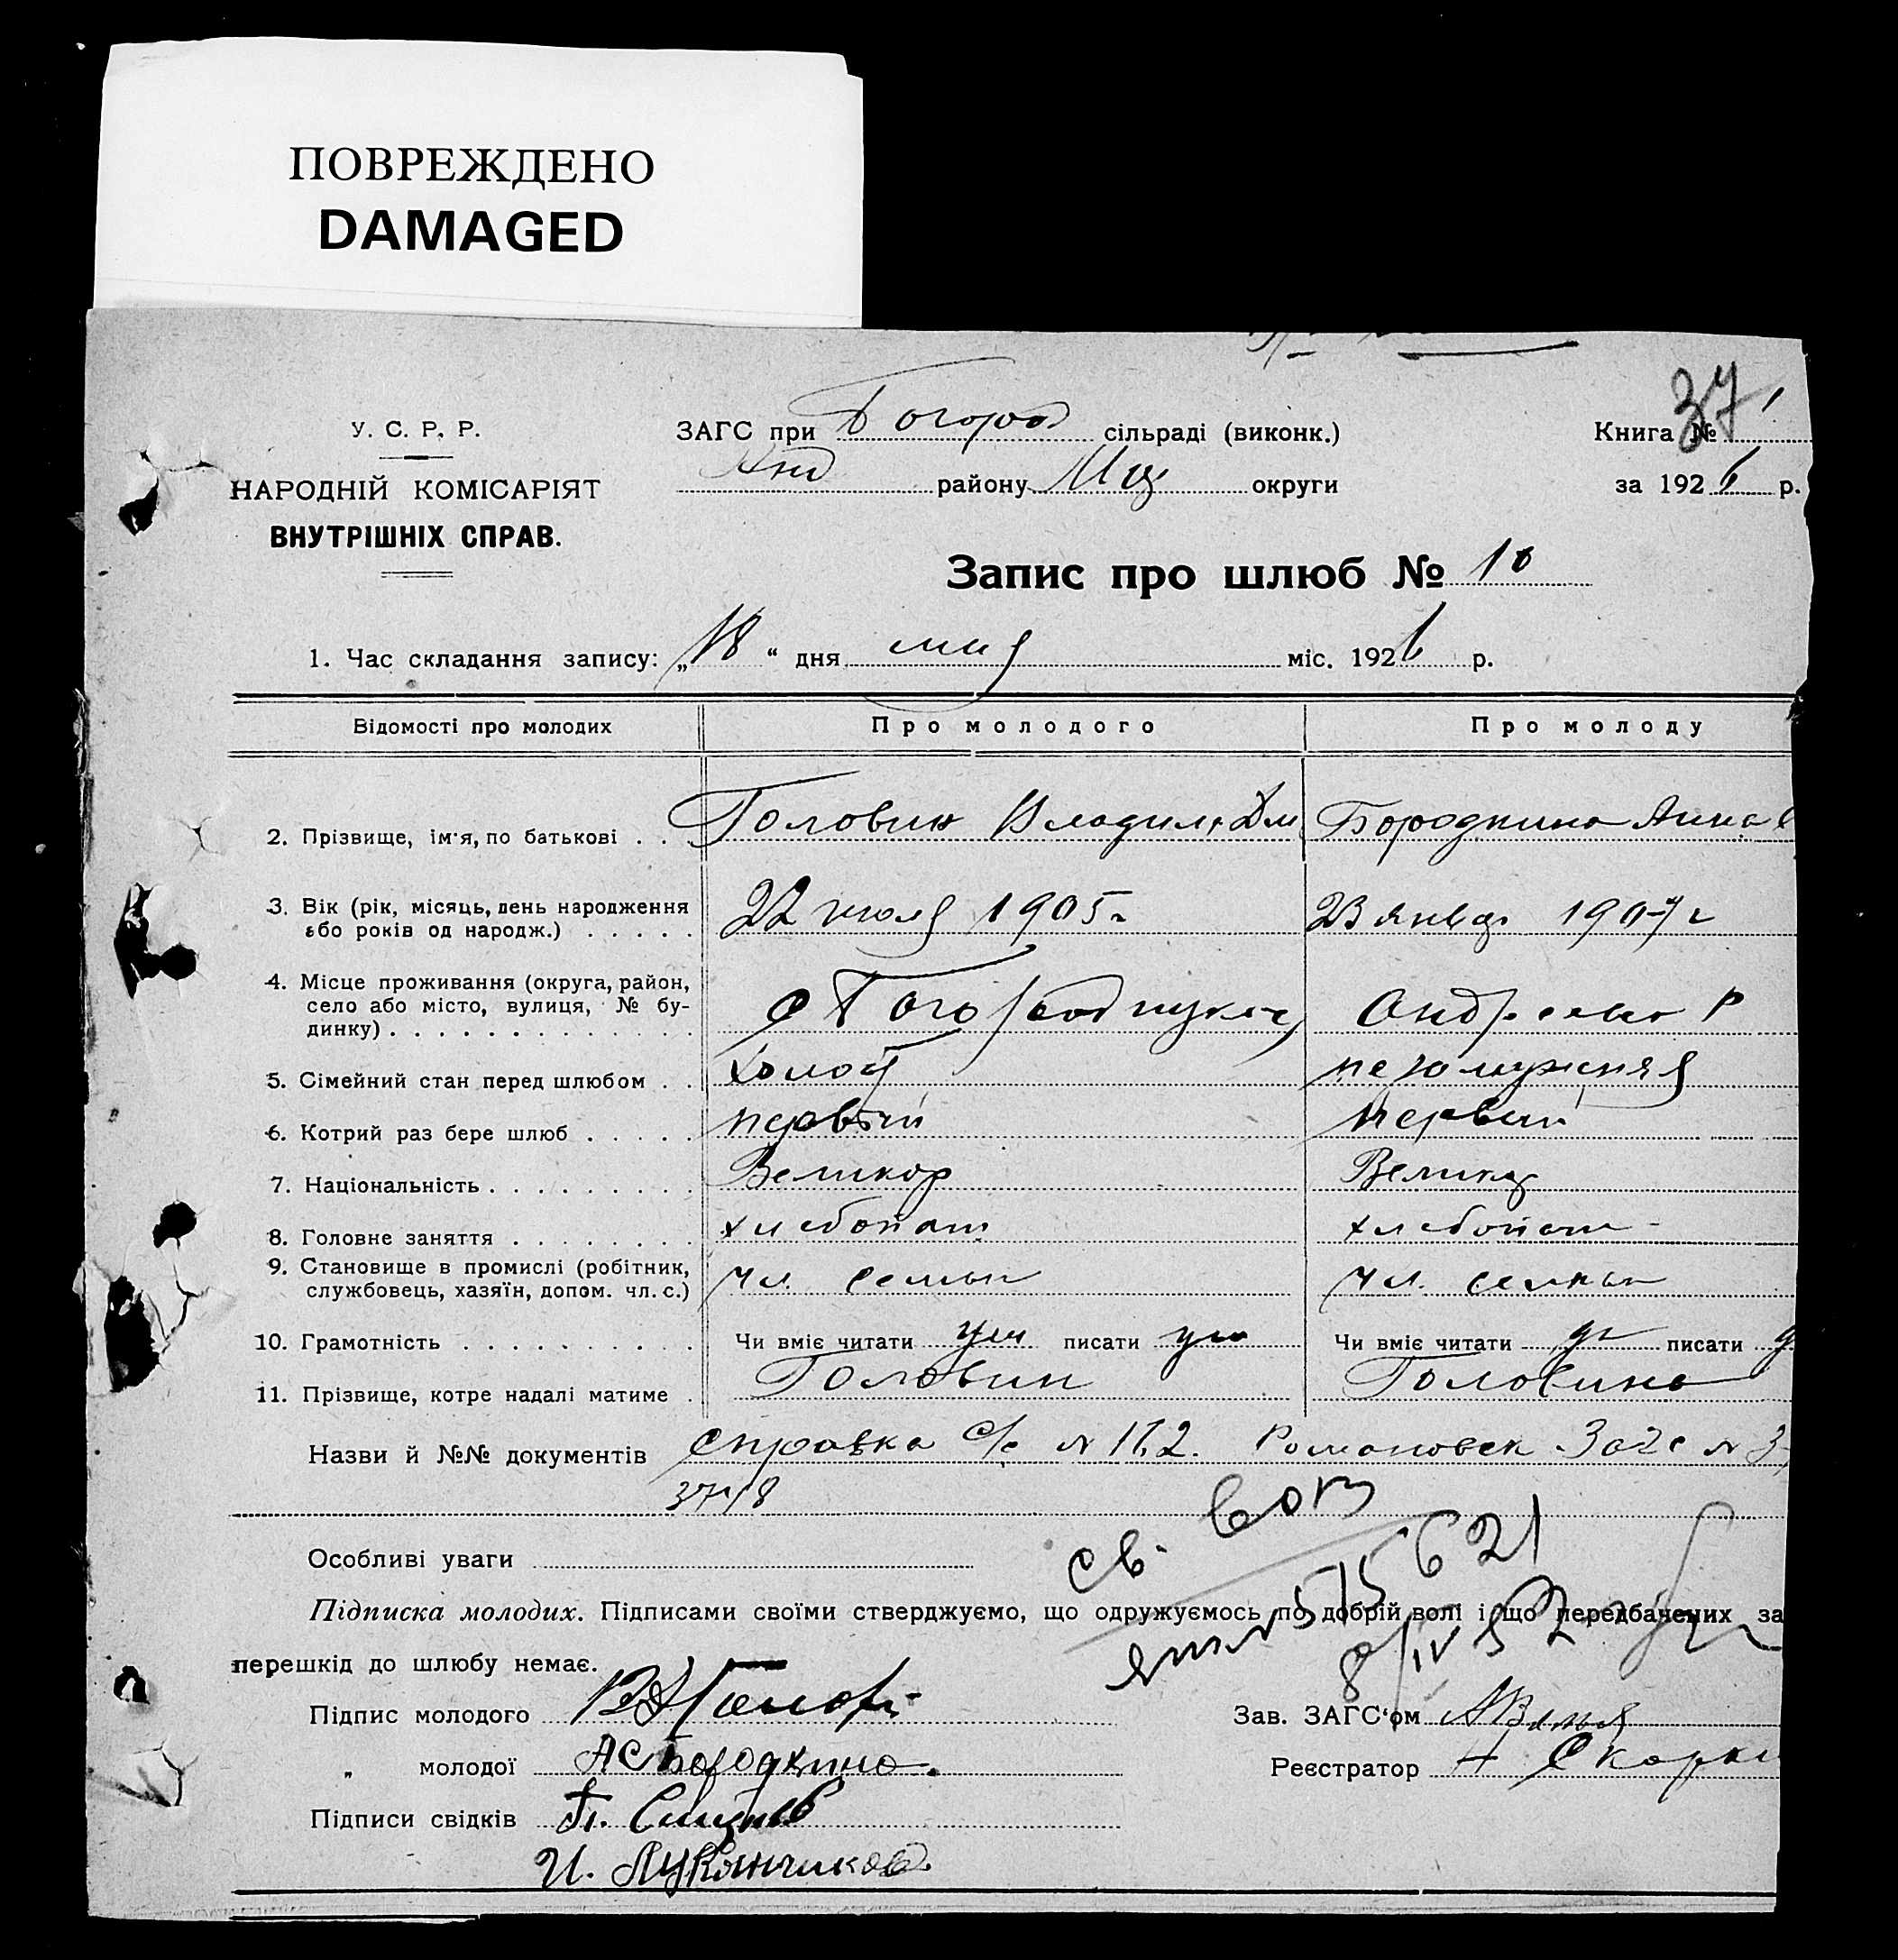 ПОВРЕЖДЕНО
DAMAGED
У. С. Р. Р.
НАРОДНІЙ КОМІСАРІЯТ
ВНУТРІШНІХ СПРАВ.
ЗАГС при Богород сільраді (виконк.)
району округи
Книга № 37
за 1926 р.
Запис про шлюб № 10
1. Час складання запису: „18“ дня мая міс. 1926 р.
Відомості про молодих Про молодого Про молоду
2. Прізвище, ім'я, по батькові . . . Головин Владим. Дм Бородкина Анна С
3. Вік (рік, місяць, день народження
або років од народж.) . . . . . 22 июля 1905 г 23 январ 1907 г
4. Місце проживання (округа, район,
село або місто, вулиця, № бу-
динку) . . . . . . . . . . . . . . Андреевс Р
5. Сімейний стан перед шлюбом . . холост незамужняя
6. Котрий раз бере шлюб . . . . . первый первый
7. Національність . . . . . . . . . Великор Великор
8. Головне заняття . . . . . . . . хлебопаш хлебопаш
9. Становище в промислі (робітник,
службовець, хазяїн, допом. чл. с.) чл. семьи чл. семьи
10. Грамотність . . . . . . . . . . Чи вміє читати ум писати ум Чи вміє читати писати
11. Прізвище, котре надалі матиме . Головин Головина
Назви й №№ документів справка с/с N 162. Романовск Загс N 3
37/8
св. воз
Особливі уваги
515621
Підписка молодих. Підписами своїми стверджуємо, що одружуємось по добрій волі і що передбачених за
8/IV 52
перешкід до шлюбу немає.
Підпис молодого Зав. ЗАГС'ом
„ молодої АС Бородкина. Реєстратор
Підписи свідків
И. Лукянчиков